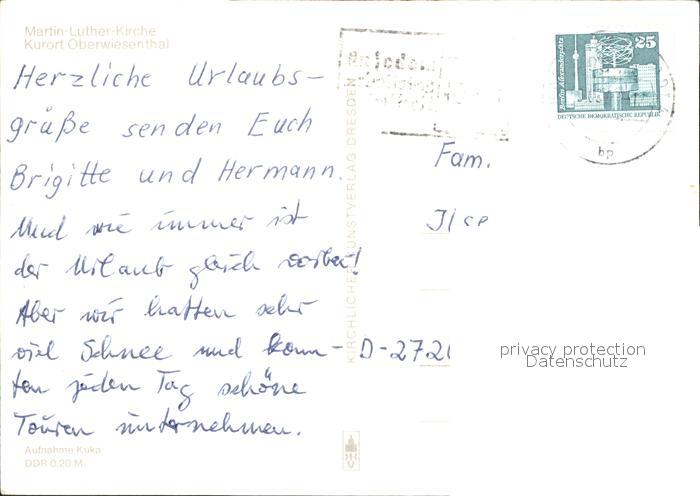 Martin-Luther-Kirche
Kurort Oberwiesenthal
Herzliche Urlaubs-
grüße senden Euch
Brigitte und Hermann.
Und wie immer ist
der Urlaub gleich vorbei!
Aber wir hatten sehr
viel Schnee und konn-
ten jeden Tag schöne
Touren unternehmen.
Aufnahme Kuka
DDR 0,20 M
KIRCHLICHE KUNSTVERLAG DRESDEN
Berlin Alexanderplatz
25
DEUTSCHE DEMOKRATISCHE REPUBLIK
bp
Fam.
Ilse
D-272
privacy protection
Datenschutz